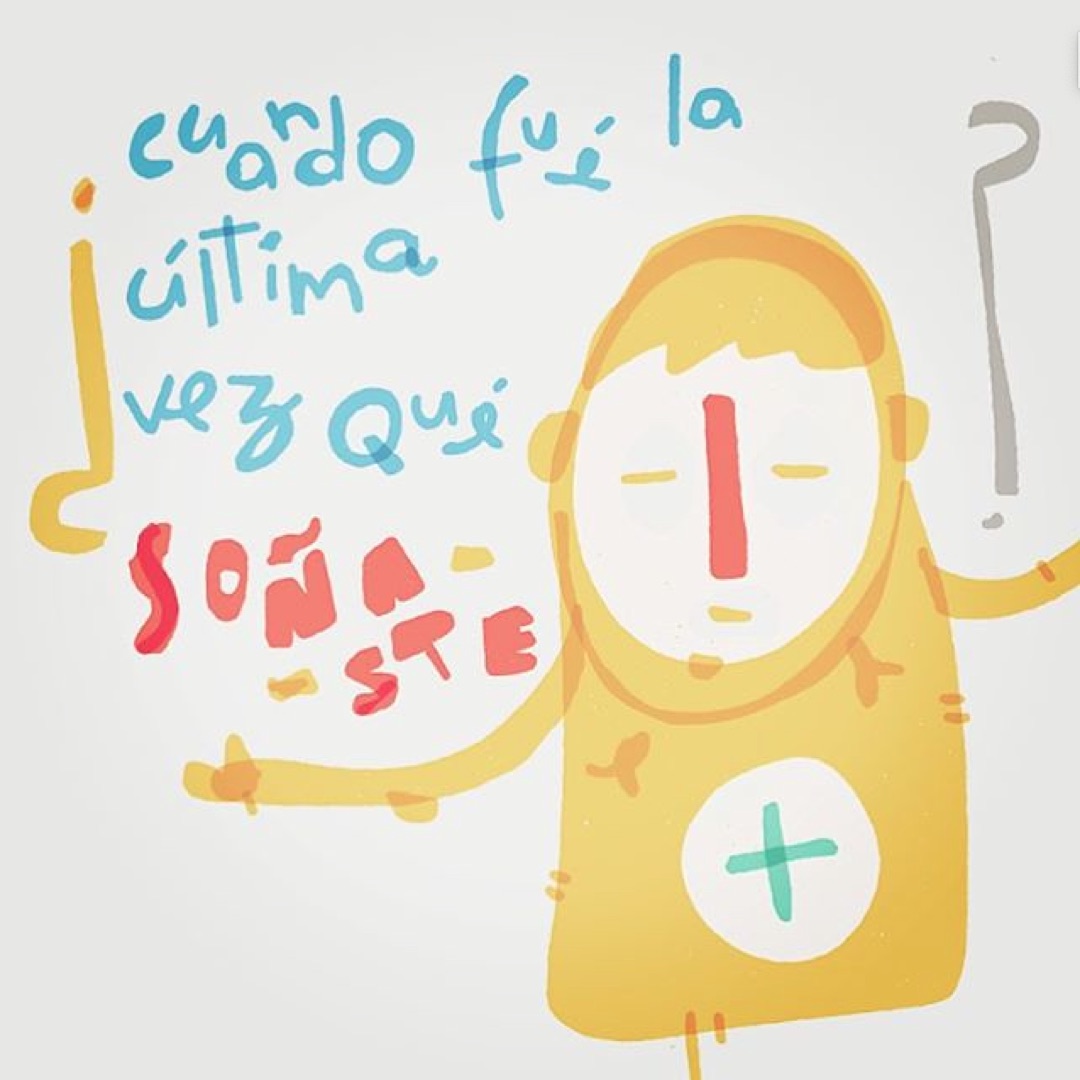 ¿cuando fué la
última
vez Qué
SOÑA-
-STE?